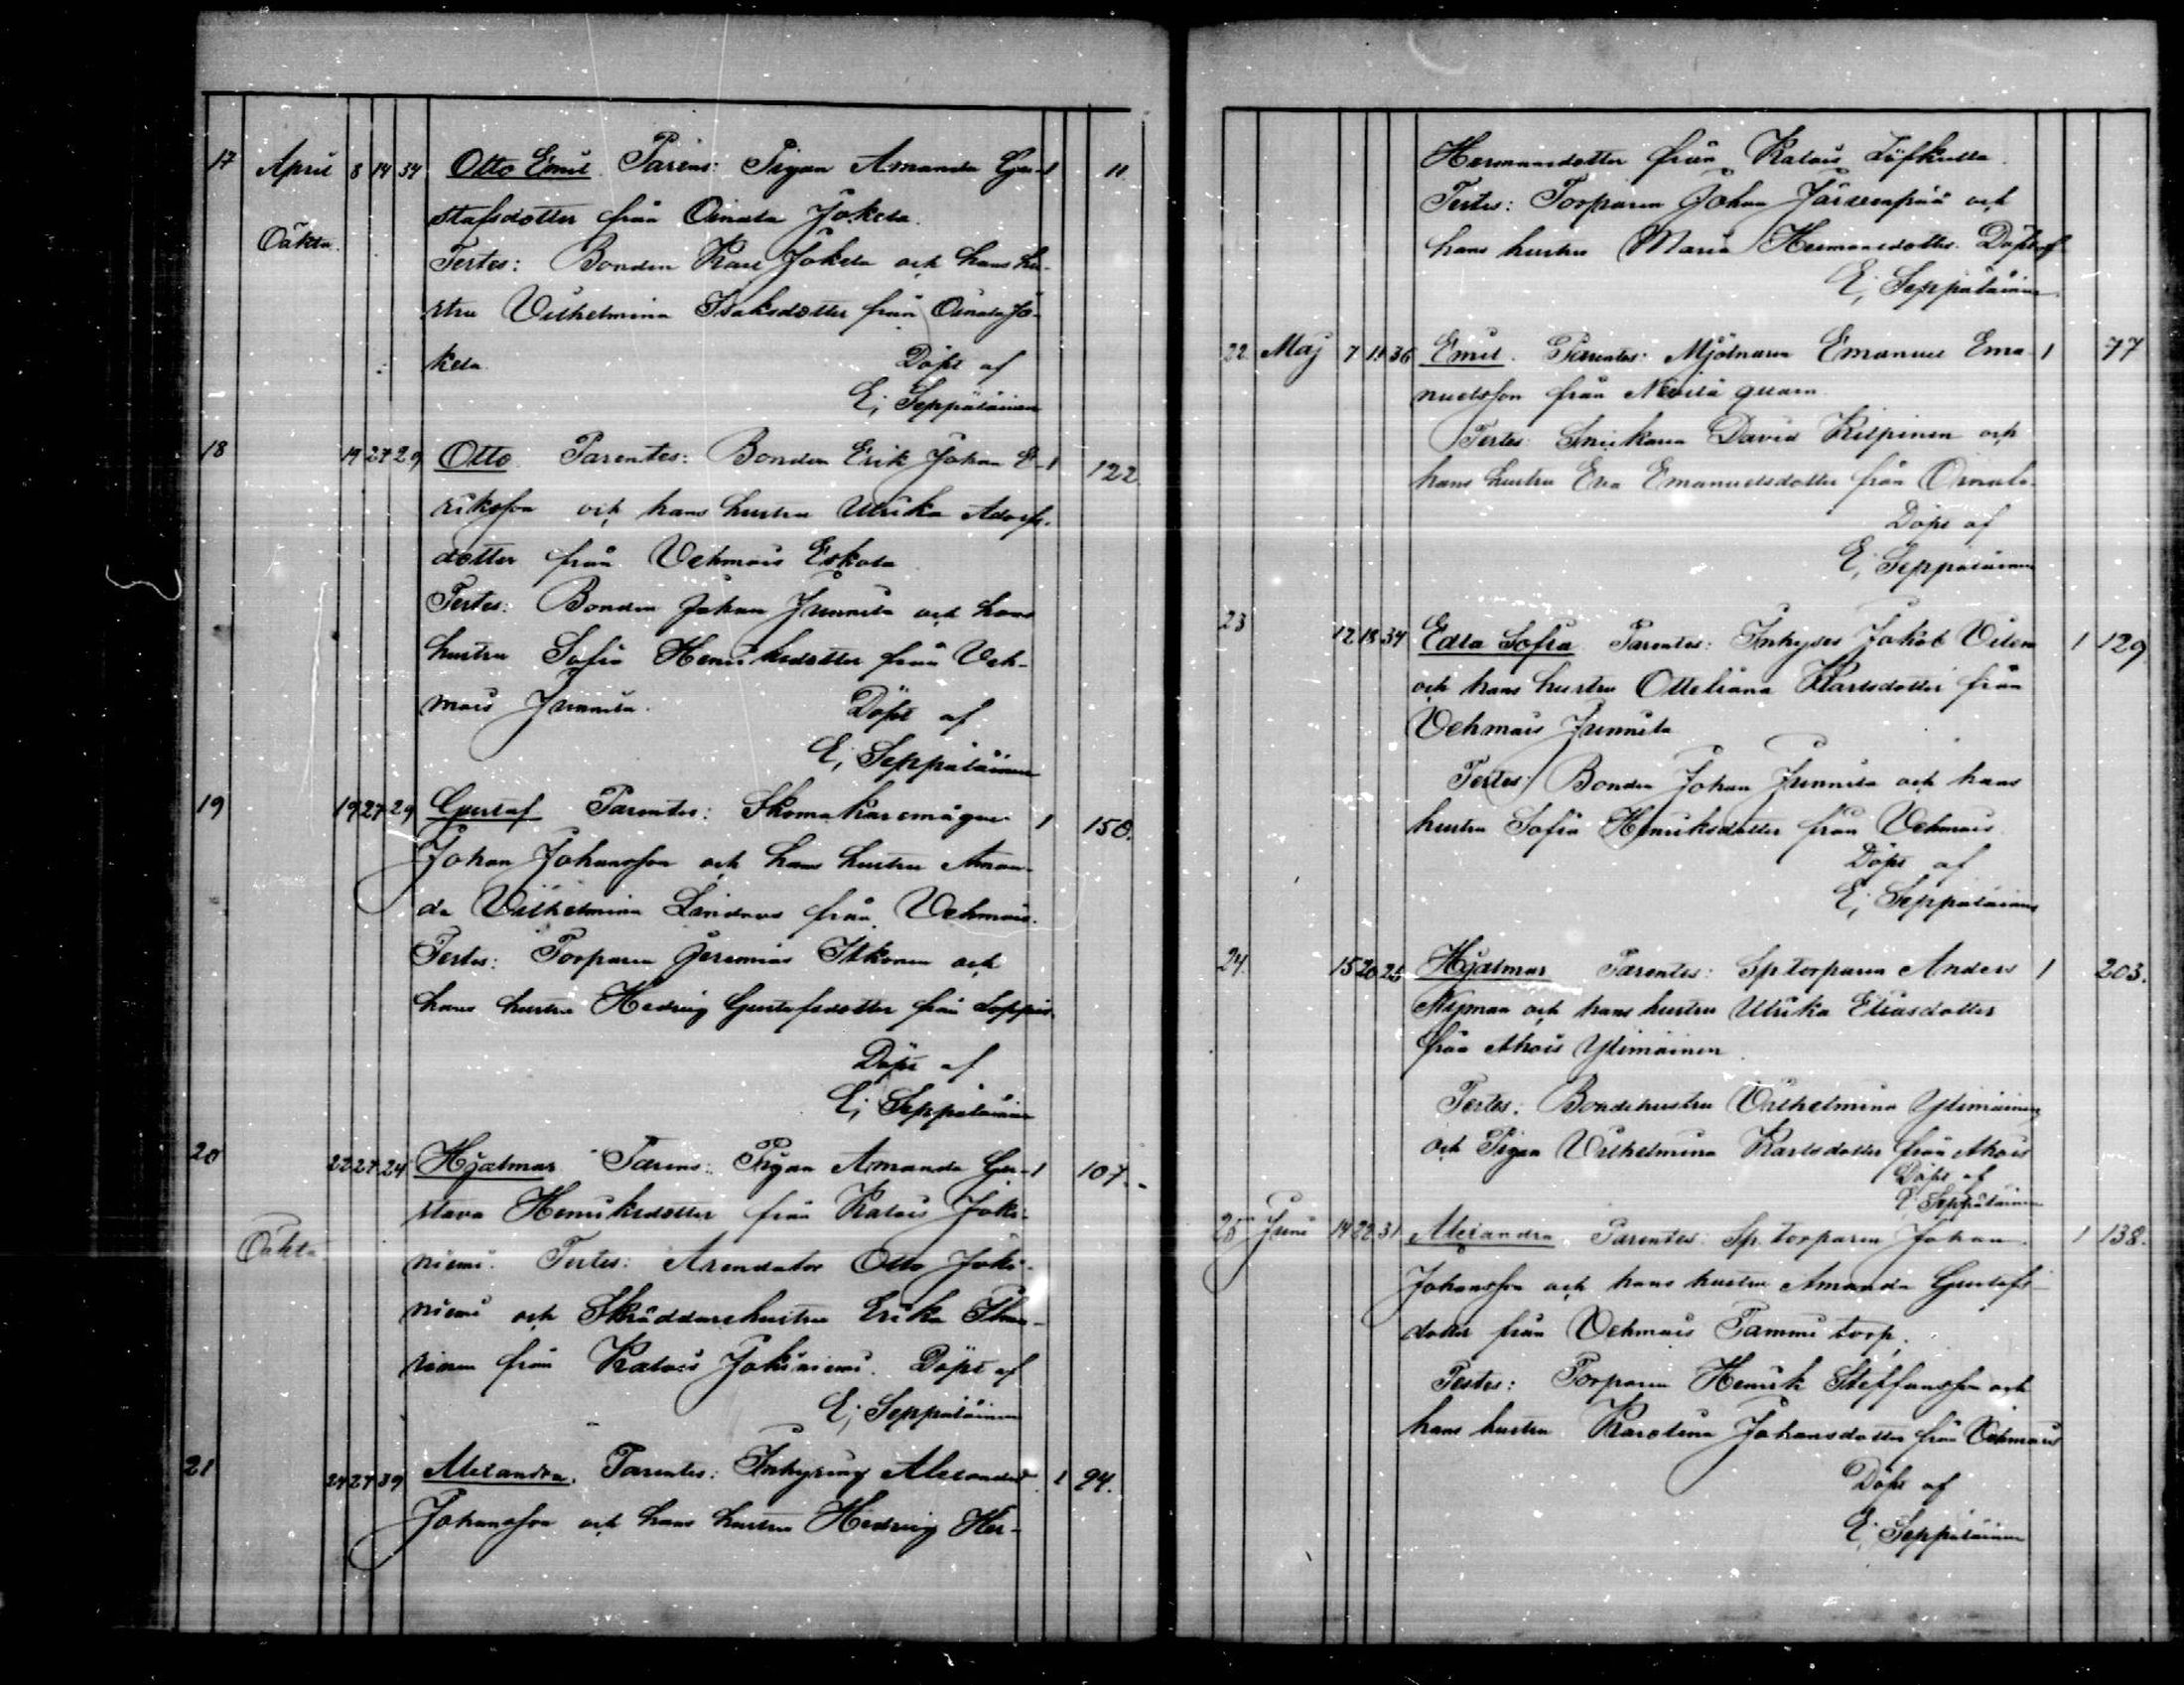 17 April 8 14 34 Otto Emil. Parens: Pigan Amanda Gu- 1 11
stafsdotter från Oinala Jokela.
Oäkta. Testes: Bonden Karl Jokela och hans hu-
stru Vilhelmina Isaksdotter från Oinala Jo-
kela. Döpt af
E; Seppäläinen
18 19 27 29 Otto Parentes: Bonden Erik Johan E- 1 122
riksson och hans hustru Ulrika Adolfs-
dotter från Vehmais Eskola
Testes: Bonden Johan Junnila och hans
hustru Sofia Henriksdotter från Veh-
mais Junnila. Döpt af
E; Seppäläinen
19 19 27 29 Gustaf Parentes: Skomakaremågen 1 150.
Johan Johansson och hans hustru Aman-
da Vilhelmina Lindroos från Vehmais.
Testes: Torparen Jeremias Itkonen och
hans hustru Hedvig Gustafsdotter från Loppis.
Döpt af
E; Seppäläinen
20 22 27 24 Hjalmar Parens: Pigan Amanda Gu- 1 107.
stava Henriksdotter från Kalais Joki-
Oäkta niemi. Testes: Arendator Otto Joki-
niemi och Skräddarehustru Erika
från Kalais Jokiniemi. Döpt af
E; Seppäläinen
21 24 27 39 Alexandra. Parentes: Inhysing Alexander 1 94.
Johansson och hans hustru Hedvig Her-
Hermansdotter från Kalais Löfkulla.
Testes: Torparen Johan Järvenpää och
hans hustru Maria Hermansdotter. Döpt af
E; Seppäläinen
22. Maj 7 11 36 Emil. Parentes: Mjölnaren Emanuel Ema- 1 77
nuelsson från qvarn.
Testes: Snickaren David Kilpinen och
hans hustru Eva Emanuelsdotter från Oinala.
Döpt af
E; Seppäläinen
23 12 18 34 Edla Sofia Parentes: Inhyses Jakob Vilen 1 129.
och hans hustru Otteliana Karlsdotter från
Vehmais Junnila
Testes: Bonden Johan Junnila och hans
hustru Sofia Henriksdotter från Vehmais
Döpt af
E; Seppäläinen
24. 15 20 25 Hjalmar Parentes: Sp. torparen Anders 1 203.
Nyman och hans hustru Ulrika Eliasdotter
från Ahois Ylimäinen.
Testes: Bondehustru Vilhelmina Ylimäinen
och Pigan Vilhelmina Karlsdotter från Ahois
Döpt af
E; Seppäläinen
25 Juni 14 22 31 Alexandra Parentes: Sp. torparen Johan 1 138.
Johansson och hans hustru Amanda Gustafs-
dotter från Vehmais Tammi torp.
Testes: Torparen Henrik Steffansson och
hans hustru Karolina Johansdotter från Vehmais
Döpt af
E; Seppäläinen